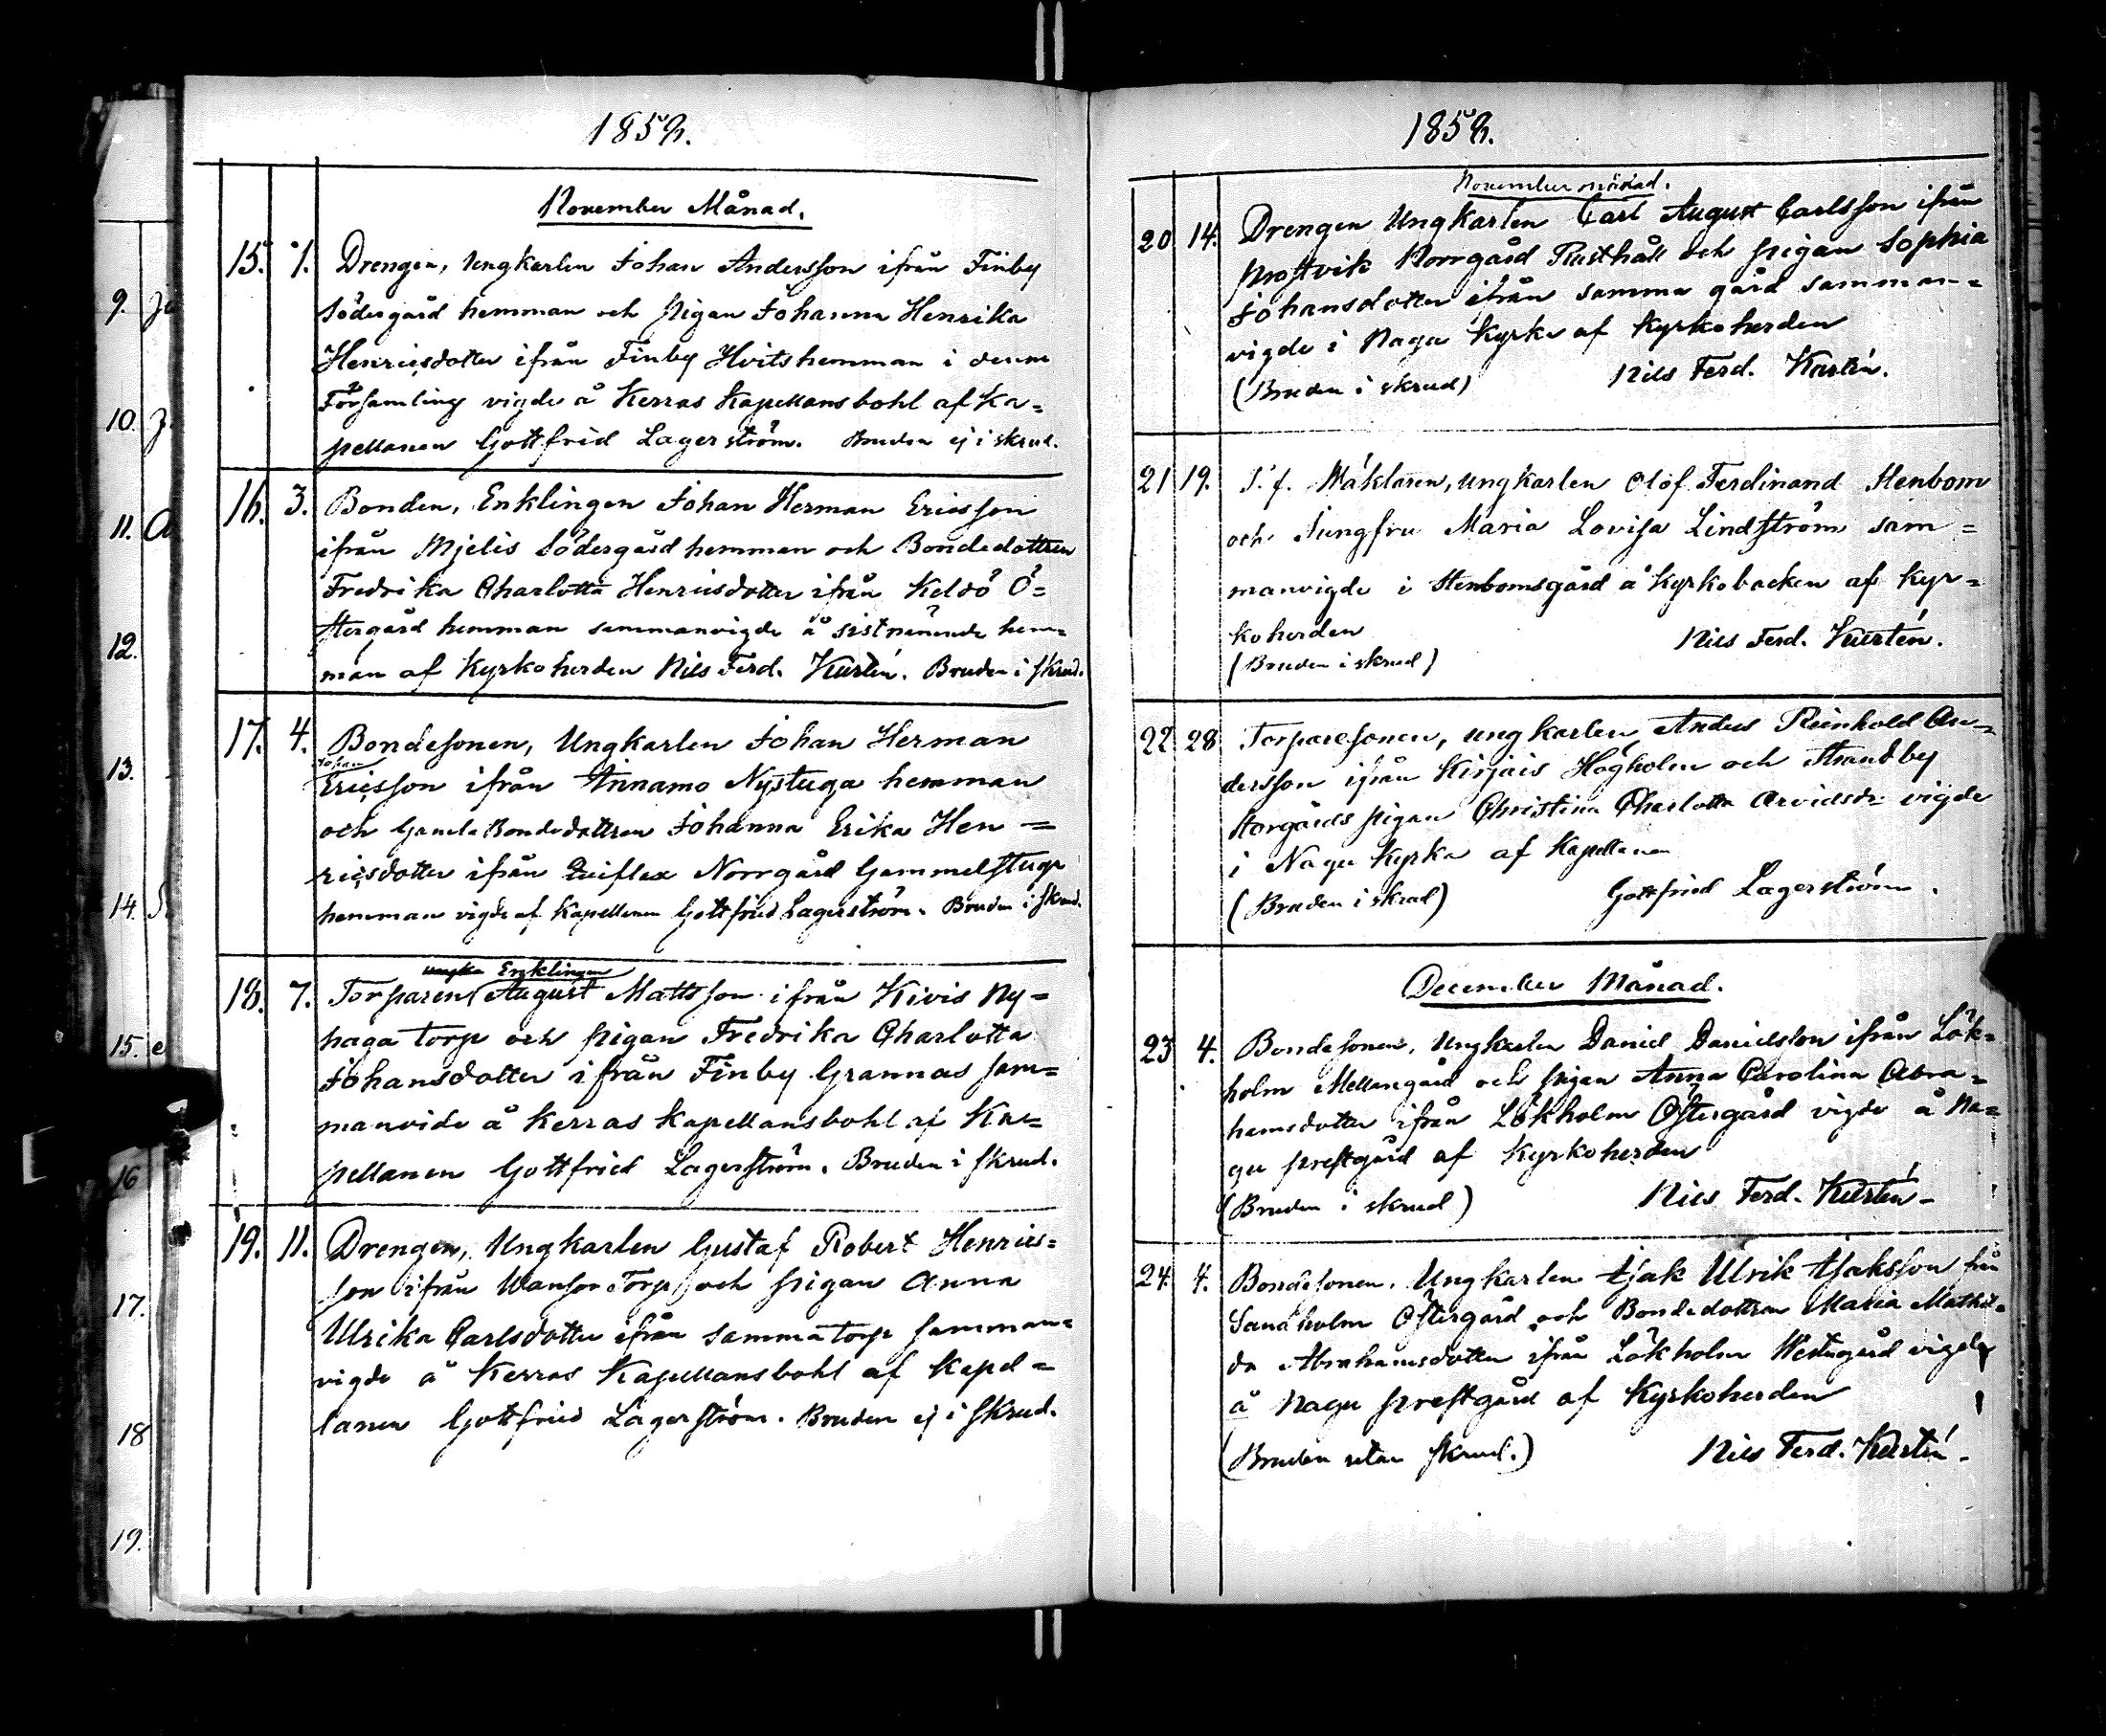 1859.
November Månad.
15. 1. Drengen, Ungkarlen Johan Andersson ifrån Finby
Södergård hemman och pigan Johanna Henrika
Henricsdotter ifrån Finby Hvitshemman i denna
Församling vigde å Kerras Kapellansbohl af Ka=
pellanen Gottfrid Lagerström. Bruden ej i skrud.
16. 3. Bonden, Enklingen Johan Herman Ericsson
ifrån Mjelis Södergård hemman och Bondedottren
Fredrika Charlotta Henricsdotter ifrån Keldö Ö=
stergård hemman sammanvigde å sistnämnde hem=
man af Kyrkoherden Nils Ferd. Kurtén. Bruden i skrud.
17. 4. Bondesonen, Ungkarlen Johan Herman
Johan
Ericsson ifrån Annamo Nystuga hemman
och Gamla Bondedottren Johanna Erika Hen=
ricsdotter ifrån Norrgård Gammelstuge
hemman vigde af Kapellanen Gottfrid Lagerström. Bruden i skrud.
Enklingen
18. 7. Torparen August Mattsson ifrån Kivis Ny=
haga torp och pigan Fredrika Charlotta
Johansdotter ifrån Finby Grannas sam=
manvide å Kerras Kapellansbohl af Ka=
pellanen Gottfried Lagerström. Bruden i skrud.
19. 11. Drengen, Ungkarlen Gustaf Robert Henrics=
son ifrån Wansor Torp och pigan Anna
Ulrika Carlsdotter ifrån samma torp samman=
vigde å Kerras Kapellansbohl af Kapel=
lanen Gottfried Lagerström. Bruden ej i skrud.
1859.
November månad.
20 14. Drengen Ungkarlen Carl August Carlsson ifrån
Prostvik Norrgård Rusthåll och pigan Sophia
Johansdotter ifrån samma gård samman=
vigde i Nagu Kyrka af Kyrkoherden
(Bruden i skrud) Nils Ferd. Kurtén.
21 19. S. f. Mäklaren, ungkarlen Olof Ferdinand Stenbom
och Jungfru Maria Lovisa Lindström sam=
manvigde i Stenbomsgård å Kyrkobacken af Kyr=
koherden Nils Ferd. Kurtén.
(Bruden i skrud)
22 28 Torparesonen, ungkarlen Anders Reinhold An=
dersson ifrån Kirjais Högholm och Strandby
Storgårds pigan Christina Charlotta Arvidsdr vigde
i Nagu Kyrka af Kapellanen
(Bruden i skrud) Gottfried Lagerström.
December Månad.
23 4. Bondesonen, Ungkarlen Daniel Danielsson ifrån Lök=
holm Mellangård och pigan Anna Carolina Abra=
hamsdotter ifrån Lökholm Östergård vigde å Na=
gu prestgård af Kyrkoherden
(Bruden i skrud) Nils Ferd. Kurtén.
24. 4. Bondesonen, Ungkarlen Isak Ulrik Isaksson från
Sandholm Östergård och Bondedottren Maria Mathil=
da Abrahamsdotter ifrån Lökholm Westergård vigde
å Nagu prestgård af Kyrkoherden
(Bruden utan skrud.) Nils Ferd. Kurtén.
9.
10.
11.
12.
13.
14.
15.
16
17.
18
19.